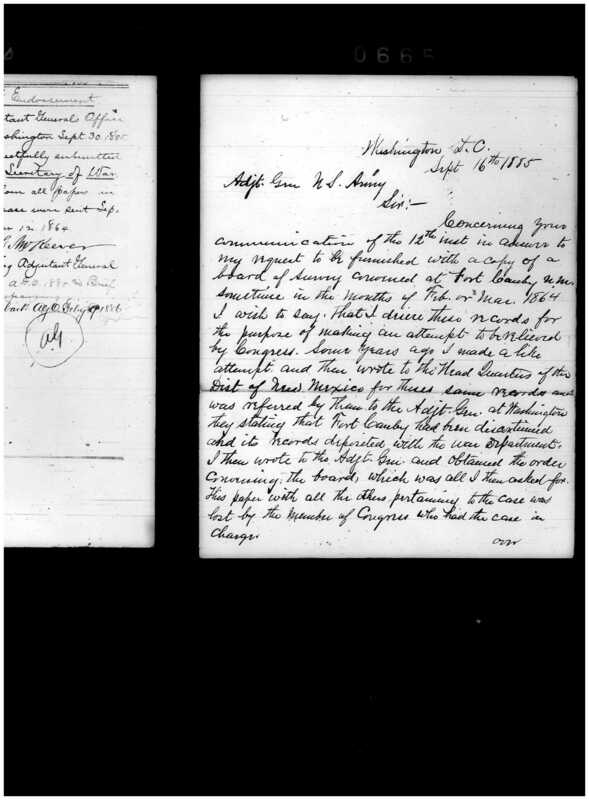 0665
Endorsement
tant General's Office
shington Sept. 30. 1885
ectfully submitted
Secretary of War.
from all papers in
case were sent Sep.
12. 1864
McKeever
Adjutant General
AG.
Washington D.C.
Sept 16th 1885
Adjt. Gen U.S. Army
Sir:-
Concerning your
communication of the 12th inst in answer to
my request to be furnished with a copy of a
board of survey convened at Fort Canby N.M.
sometime in the months of Feb. or Mar. 1864
I wish to say, that I desire these records for
the purpose of making an attempt to be relieved
by Congress. Some years ago I made a like
attempt and then wrote to the Head Quarters of the
Dist of New Mexico for these same records and
was referred by them to the Adjt. Gen. at Washington
they stating that Fort Canby had been discontinued
and its records deposited with the War Department.
I then wrote to the Adjt. Gen. and obtained the order
convening the board, which was all I then asked for.
This paper with all the others pertaining to the case was
lost by the Member of Congress who had the case in
charge.
over